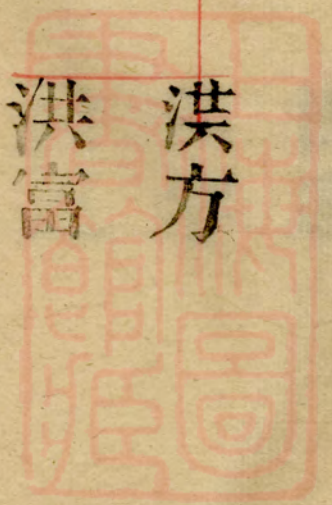 洪方
洪富